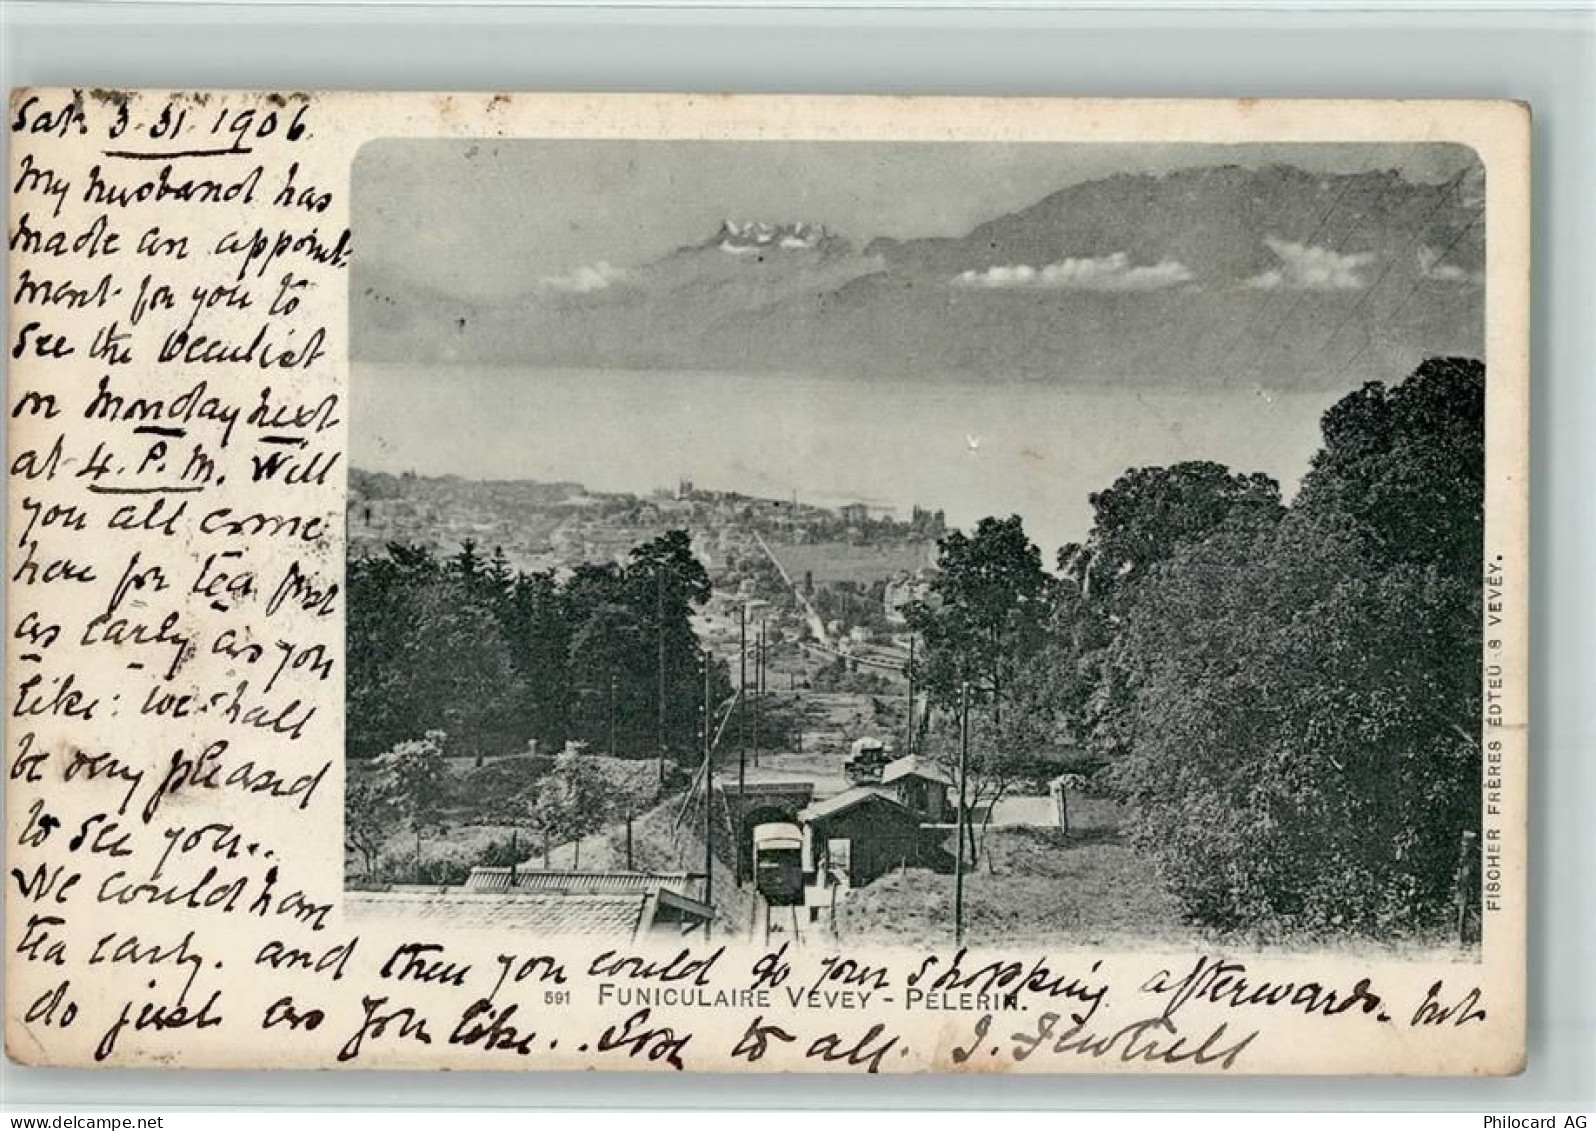 Sat. 3.31.1906.
My husband has
made an appoint-
ment for you to
see the occulist
on Monday next
at 4. P. M. Will
you all come
here for tea first
as early as you
like: we shall
be very pleased
to see you..
We could have
tea early. and then you could do your shopping afterwards. but
591 FUNICULAIRE VEVEY - PÉLERIN.
do just as you like.. Love to all. J.
FISCHER FRÈRES ÉDTEURS VEVEY.
www.delcampe.net
Philocard AG